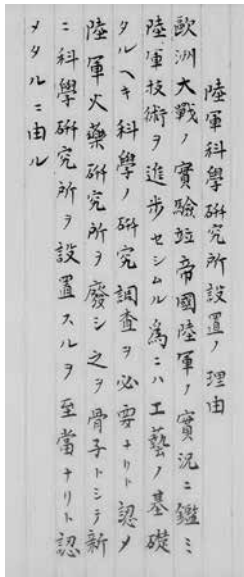 陸軍科學硏究所設置ノ理由
歐洲大戰ノ實驗竝帝國陸軍ノ實況ニ鑑ミ
陸軍技術ヲ進步セシムル爲ニハ工藝ノ基礎
タルヘキ科學ノ硏究調査ヲ必要ナリト認メ
陸軍火藥硏究所ヲ廢シ之ヲ骨子トシテ新
ニ科學硏究所ヲ設置スルヲ至當ナリト認
メタルニ由ル